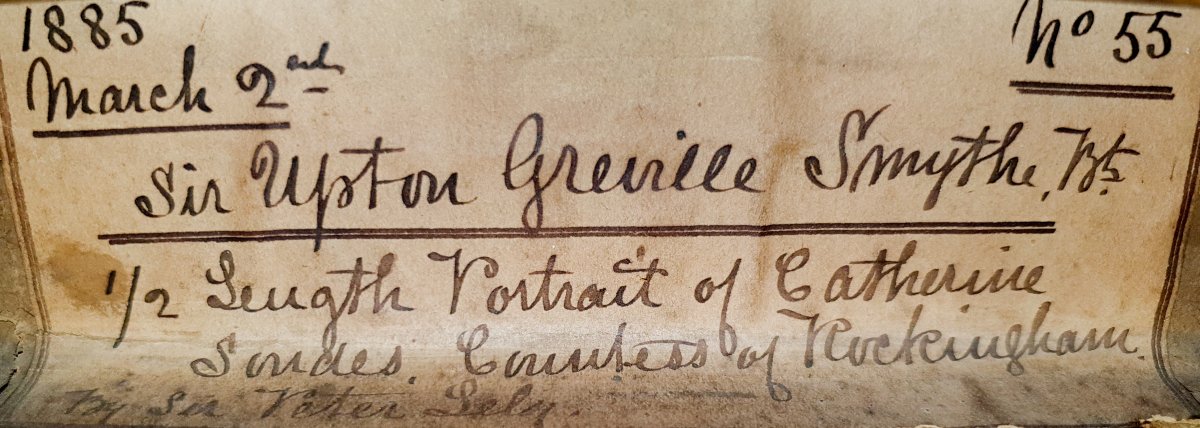 1885 Nº 55
March 2nd
Sir Upton Greville Smythe, Bt.
1/2 Length Portrait of Catherine
Sondes. Countess of Rockingham.
By Sir Peter Lely.